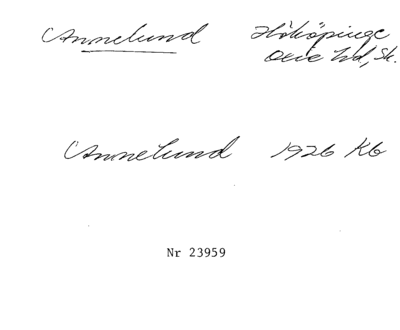 Annelund Hököpinge
Oxie hd, Sk.
Annelund 1926 Kb
Nr 23959